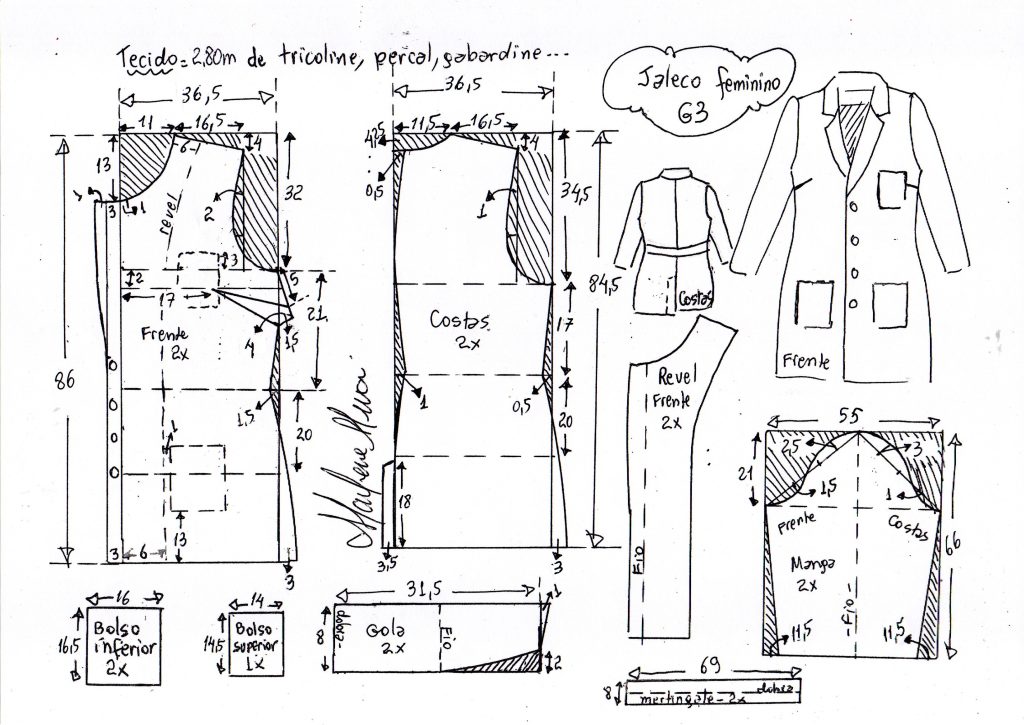 Tecido = 2,80m de tricoline, percal, gabardine...
Jaleco feminino
G3
36,5
11
16,5
4
13
6
1
3
1
revel
2
32
3
2
17
5
21
Frente
2x
4
1,5
86
1,5
20
1
13
3
6
3
36,5
11,5
16,5
4
0,5
1
34,5
84,5
Costas
2x
17
1
0,5
20
18
3,5
3
Marlene Mukai
Costas
Frente
Revel
Frente
2x
Fio
55
2,5
3
21
1,5
1
Frente
Costas
66
Manga
2x
Fio
11,5
11,5
16
16,5
Bolso
inferior
2x
14
14,5
Bolso
superior
1x
31,5
1
8
dobra
Gola
2x
Fio
2
69
8
dobra
martingale - 2x